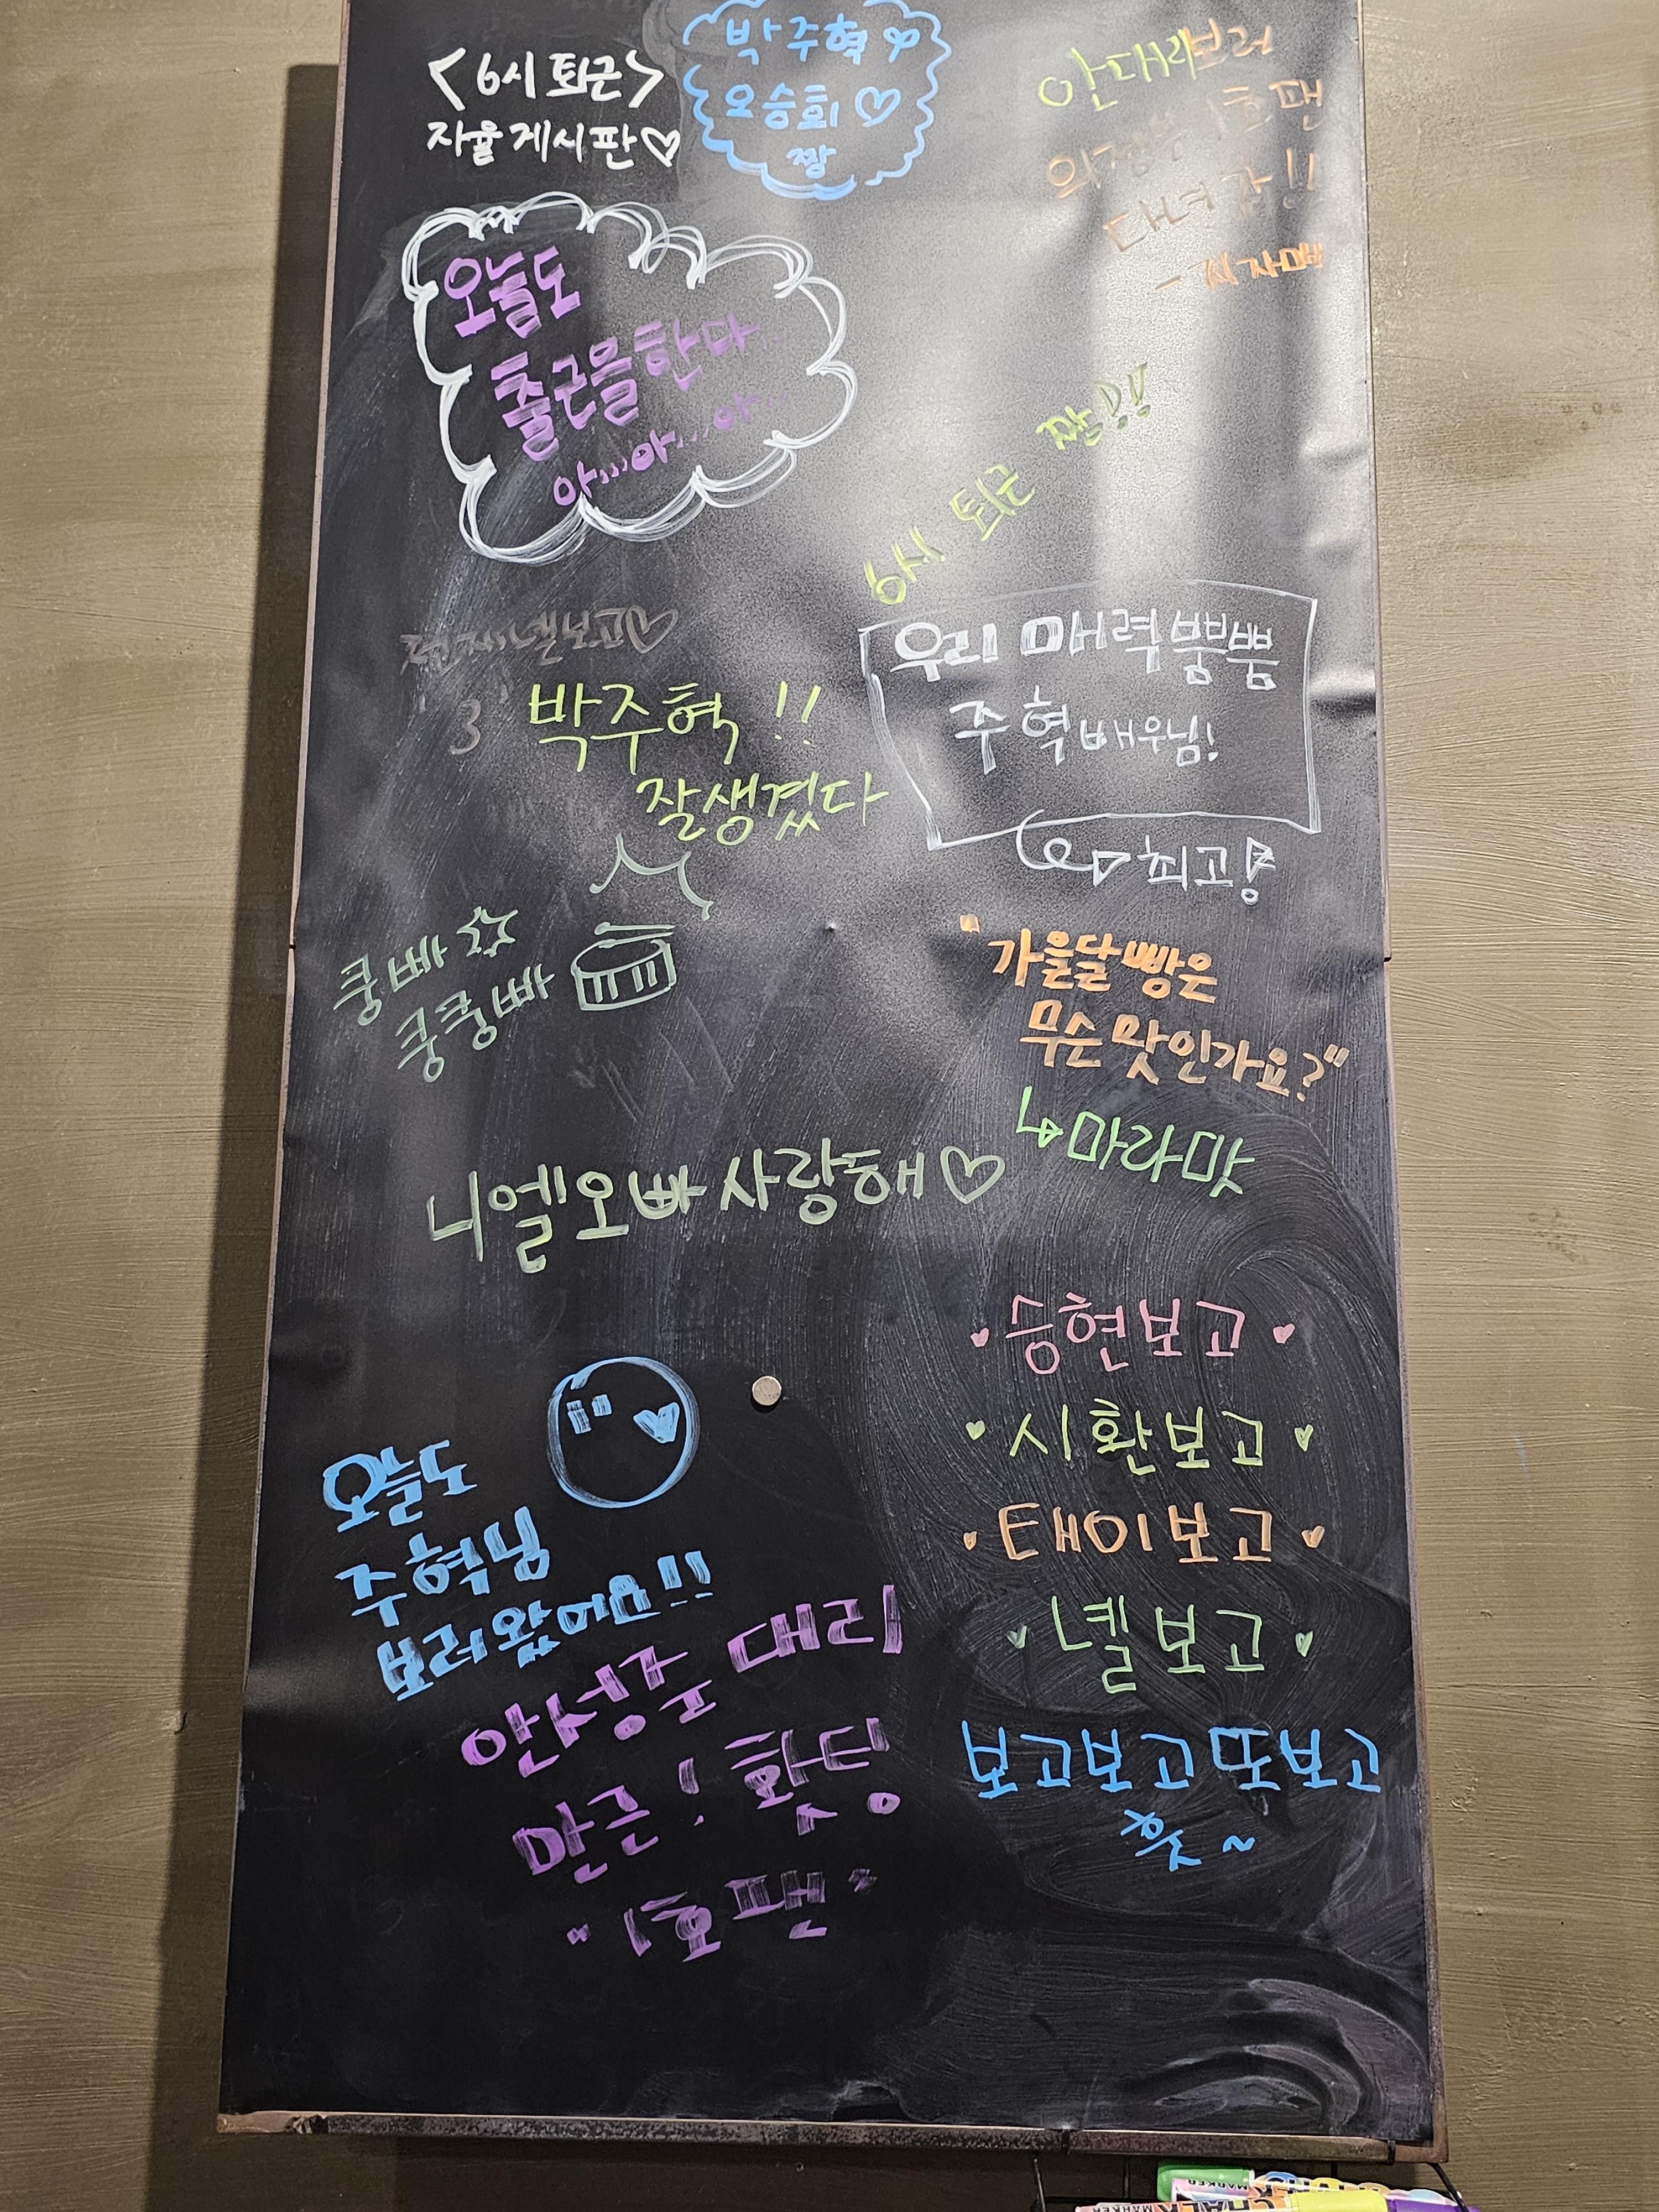 <6시 퇴근>
자율게시판♡
박주혁
오승희♡
짱
안대리보러
1호팬
오늘도
출근을한다
아...아...아...
6시 퇴근 짱!!
우리 매력뿜뿜
주혁배우님!
최고!
박주혁!!
잘생겼다
쿵빠☆
쿵쿵빠
"가을달빵은
무슨맛인가요?"
↳마라맛
니엘오빠사랑해♡
♥승현보고♥
♥시환보고♥
♥태이보고♥
♥녤보고♥
보고보고또보고
오늘도
주혁님
보러왔어요!!
안성준 대리
만근! 홧팅
"1호팬"